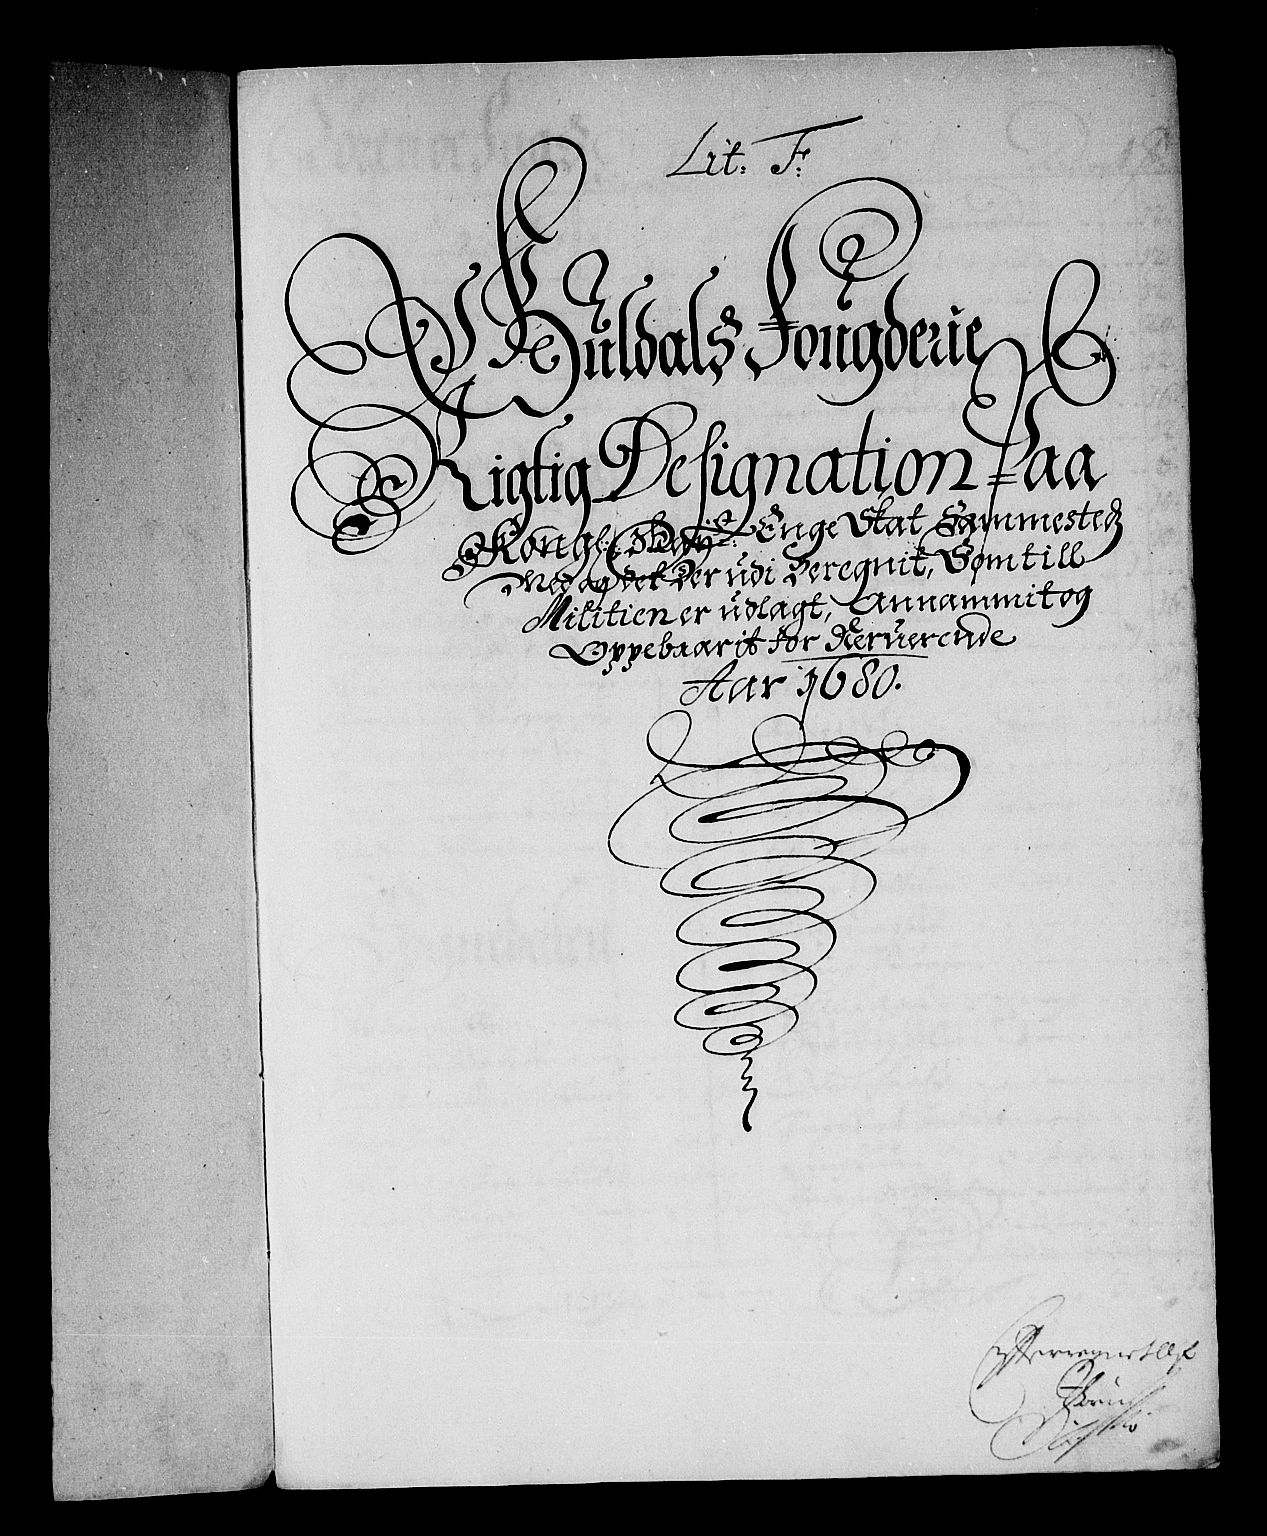 Lit: F:
Guldals Fougderie
Rigtig Designation Paa
Kongl: May:tz Enge Skat Sammestedz
Med og det der udi beregnit, Som till
Militien er udlagt, Annammit og
Oppebaarit for Nerverende
Aar 1680.